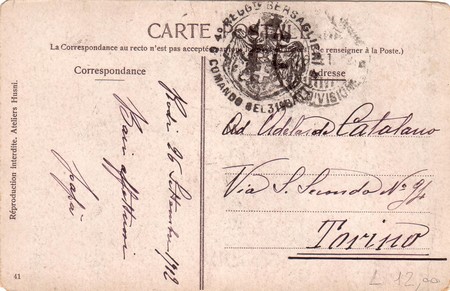 CARTE POSTALE
(La Correspondance au recto n'est pas acceptée
se renseigner à la Poste.)
Correspondance
Adresse
4º REGG. BERSAGLIERI
COMANDO DEL 31º
DIVISIONE
Rodi 26 Settembre 1912
Baci affettuosi
papà
Ad Adelaide Catalano
Via S. Secondo Nº 94
Torino
Réproduction Interdite. Ateliers Husni.
41
L 12,00